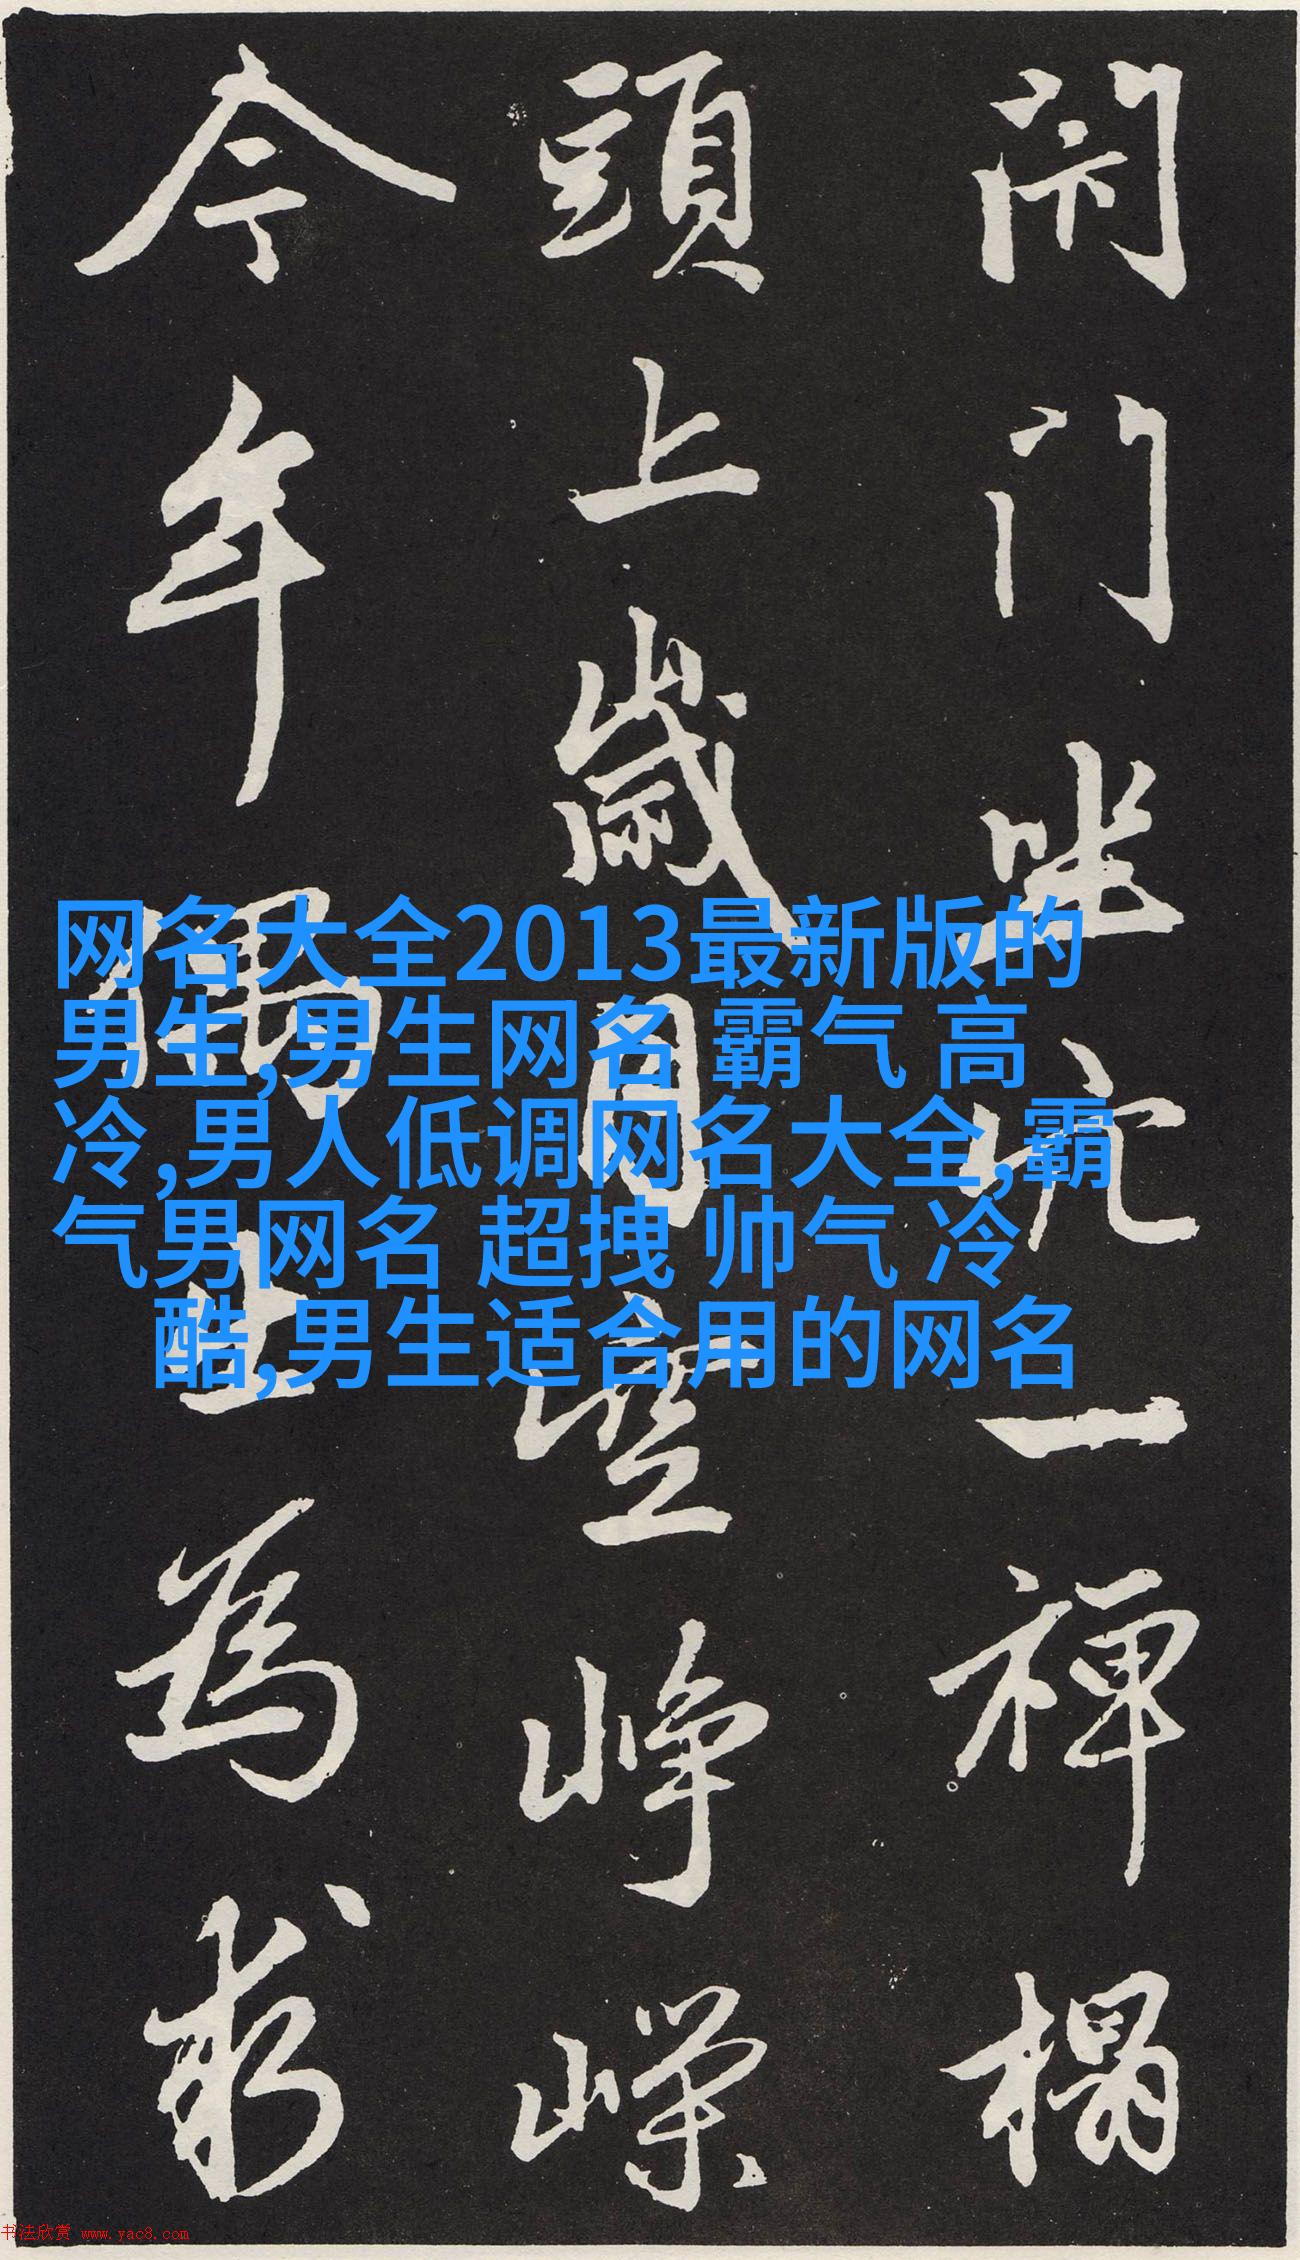 闭门坐忙一禅榻
頭上歲月空峥嵘
今年偶出為求
网名大全2013最新版的
男生,男生网名 霸气 高
冷,男人低调网名大全,霸
气男网名 超拽 帅气 冷
酷,男生适合用的网名
书法欣赏 www.yac8.com